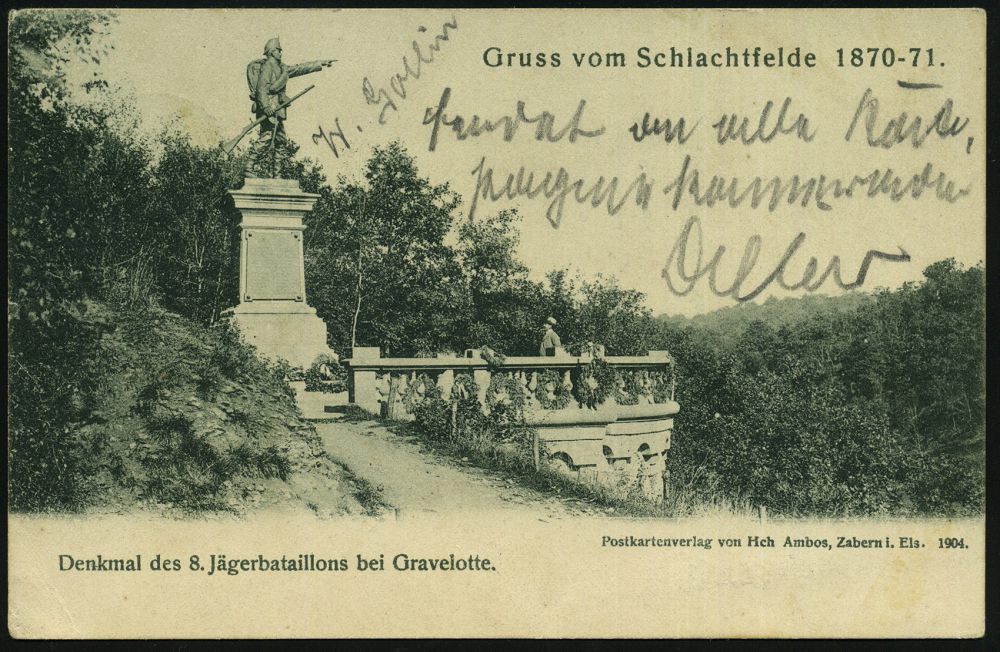 Gruss vom Schlachtfelde 1870-71.
W. Gollin
sendet an alle
Denkmal des 8. Jägerbataillons bei Gravelotte.
Postkartenverlag von Hch Ambos, Zabern i. Els. 1904.